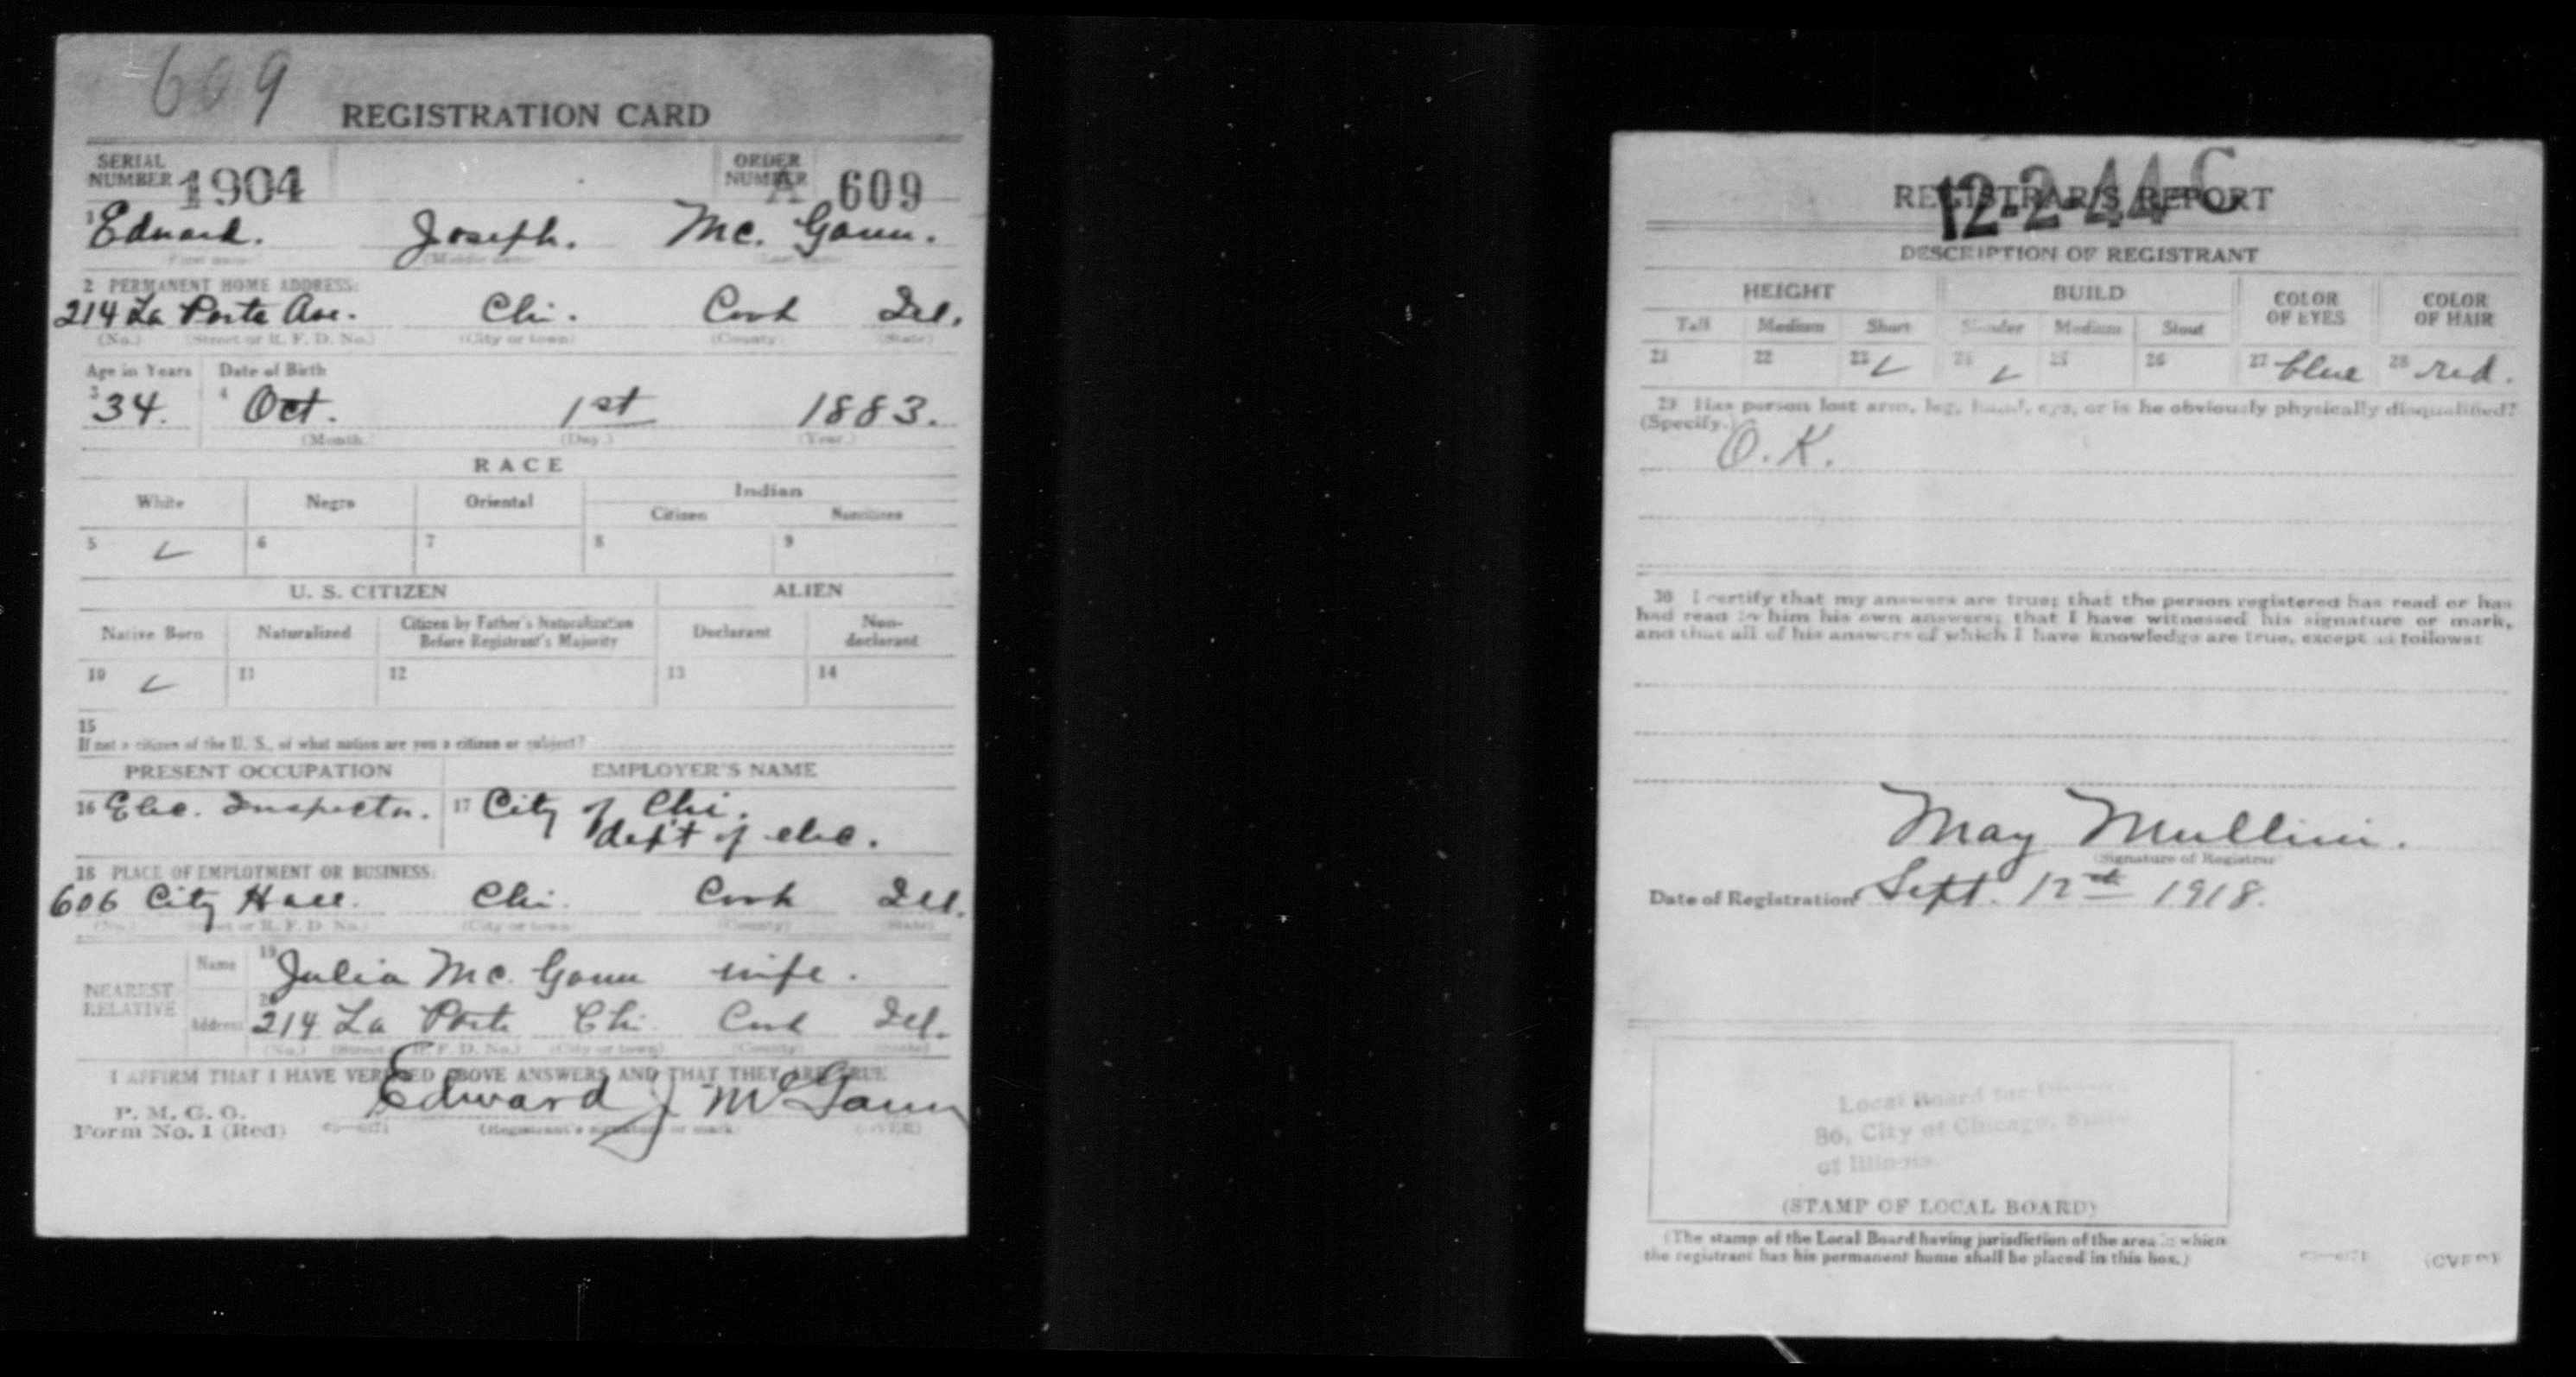 609
REGISTRATION CARD
SERIAL NUMBER 1904 ORDER NUMBER A 609
1 Edward. Joseph. Mc. Gann.
(First name) (Middle name) (Last name)
2 PERMANENT HOME ADDRESS:
214 La Porte Ave. Chi. Cook Ill.
(No.) (Street or R. F. D. No.) (City or town) (County) (State)
Age in Years Date of Birth
3 34. 4 Oct. 1st 1883.
(Month.) (Day.) (Year.)
RACE
White Negro Oriental Indian
Citizen Noncitizen
5 ✓ 6 7 8 9
U. S. CITIZEN ALIEN
Native Born Naturalized Citizen by Father's Naturalization Before Registrant's Majority Declarant Non-declarant
10 ✓ 11 12 13 14
15
If not a citizen of the U. S., of what nation are you a citizen or subject?
PRESENT OCCUPATION EMPLOYER'S NAME
16 Elec. Inspector. 17 City of Chi.
dept of elec.
18 PLACE OF EMPLOYMENT OR BUSINESS:
606 City Hall. Chi. Cook Ill.
(No.) (Street or R. F. D. No.) (City or town) (County) (State)
NEAREST RELATIVE
Name 19 Julia Mc. Gann wife.
Address 20 214 La Porte Chi. Cook Ill.
(No.) (Street or R. F. D. No.) (City or town) (County) (State)
I AFFIRM THAT I HAVE VERIFIED ABOVE ANSWERS AND THAT THEY ARE TRUE
P. M. G. O.
Form No. 1 (Red) Edward J McGann
(Registrant's signature or mark) (OVER)
12-2-44 C
REGISTRAR'S REPORT
DESCRIPTION OF REGISTRANT
HEIGHT BUILD COLOR OF EYES COLOR OF HAIR
Tall Medium Short Slender Medium Stout
21 22 23 ✓ 24 ✓ 25 26 27 blue 28 red.
29 Has person lost arm, leg, hand, eye, or is he obviously physically disqualified?
(Specify.) O. K.
30 I certify that my answers are true; that the person registered has read or has
had read to him his own answers; that I have witnessed his signature or mark,
and that all of his answers of which I have knowledge are true, except as follows:
May Mullin.
(Signature of Registrar)
Date of Registration Sept. 12th 1918.
Local Board for Division
86, City of Chicago, State
of Illinois.
(STAMP OF LOCAL BOARD)
(The stamp of the Local Board having jurisdiction of the area in which
the registrant has his permanent home shall be placed in this box.)
(OVER)